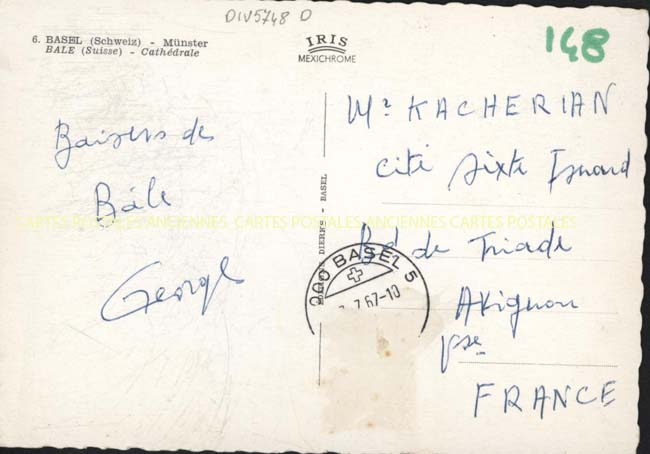 DIV5748 D
6. BASEL (Schweiz) - Münster
BALE (Suisse) - Cathédrale
IRIS
MEXICHROME
148
Baisers de
Bâle
George
Mr KACHERIAN
cité Sixte Isnard
Bd de Triade
Avignon
Vse
FRANCE
BASEL 5
7.67-10
DIERKS - BASEL
CARTES POSTALES ANCIENNES CARTES POSTALES ANCIENNES CARTES POSTALES